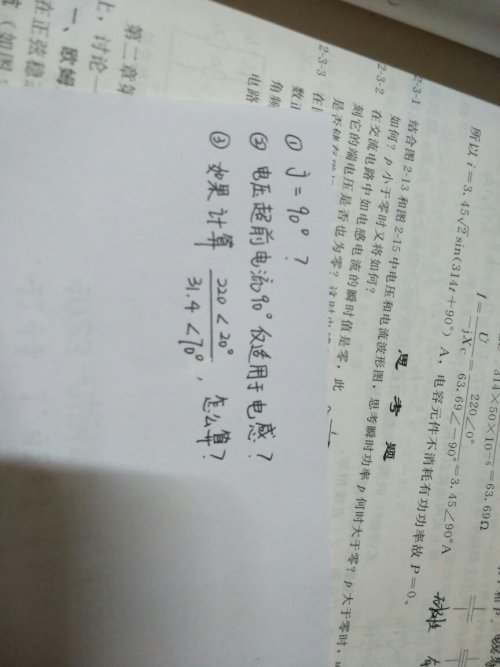 314×50×10⁻⁶ = 63.69Ω
I = U / jXc = 220∠0° / 63.69∠-90° = 3.45∠90°A
所以 i=3.45√2 sin(314t+90°) A，电容元件不消耗有功功率故 P=0。
思 考 题
2-3-1 结合图2-13和图2-15中电压和电流波形图，思考瞬时功率p何时大于零？p大于零时，
如何？p小于零时又将如何？
2-3-2 在交流电路中如电感电流的瞬时值是零，此
刻它的端电压是否也为零？
2-3-3 在
角频
电路
第二章
上，讨论一
一、欧姆
在正弦稳
(如图
① j=90°？
② 电压超前电流90°仅适用于电感？
③ 如果计算 220<20° / 31.4<70°，怎么算？